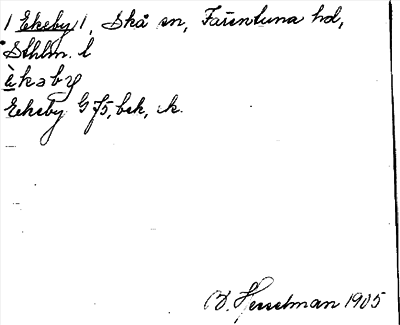 / Ekeby /, Skå sn, Färentuna hd,
Sthlm. l
èkəby
Ekeby G 75, bek, ik.
B. Hesselman 1905